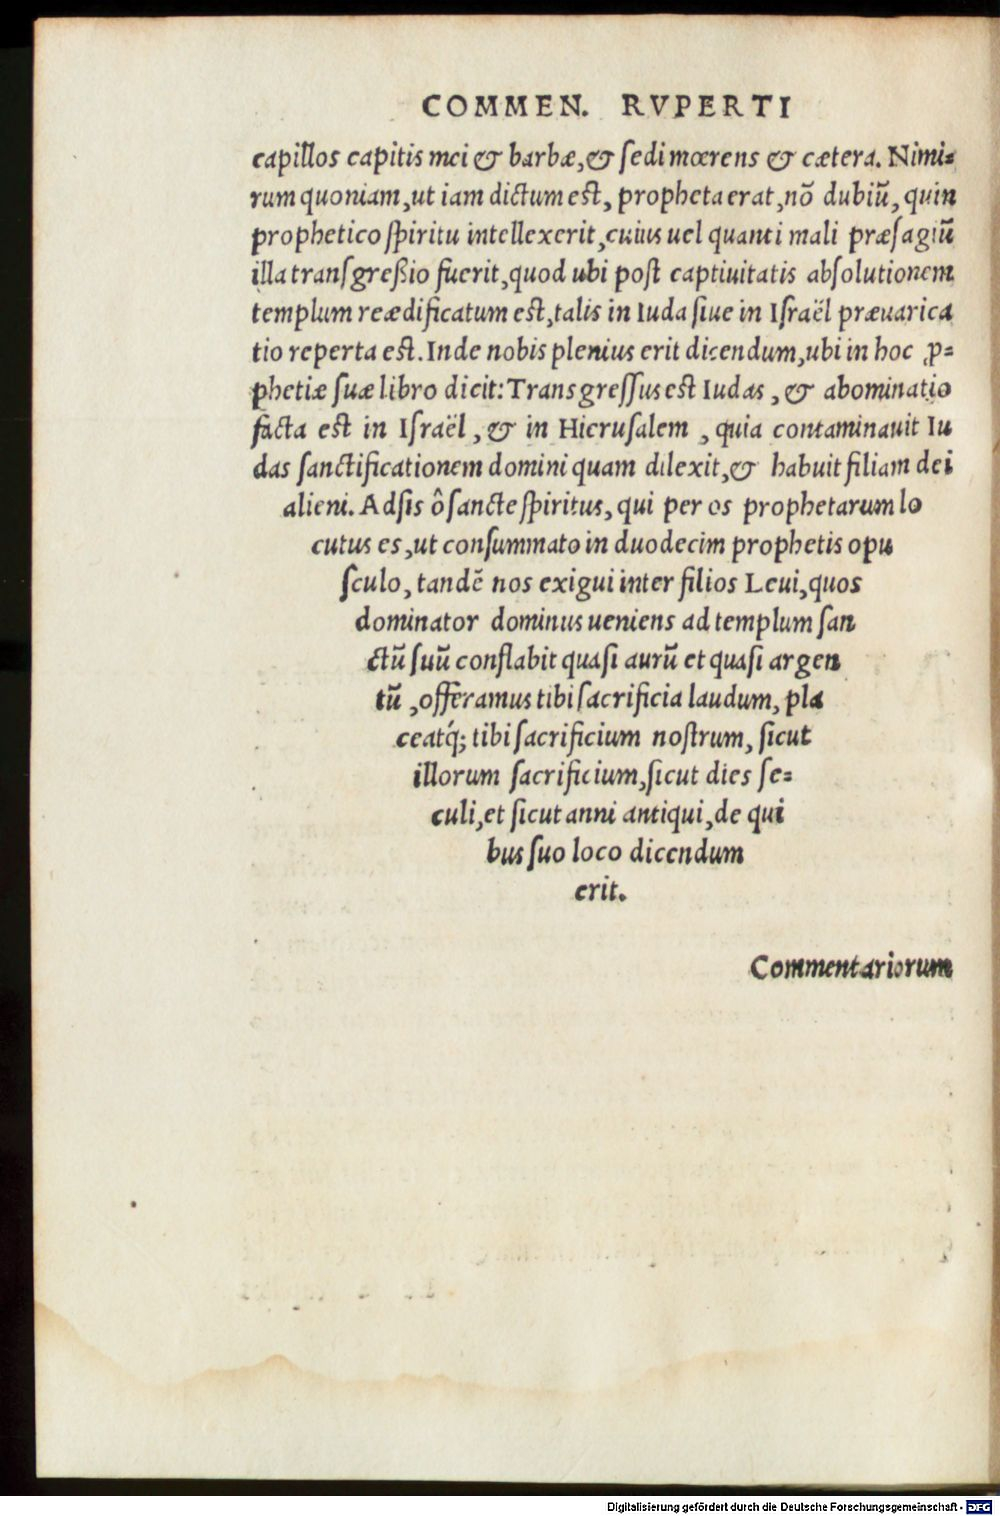 COMMEN. RVPERTI
capillos capitis mei & barbæ, & sedi mœrens & cætera. Nimi-
rum quoniam, ut iam dictum est, propheta erat, nō dubiũ, quin
prophetico spiritu intellexerit, cuius uel quanti mali præsagiũ
illa transgreßio fuerit, quod ubi post captiuitatis absolutionem
templum reædificatum est, talis in Iuda siue in Israël præuarica
tio reperta est. Inde nobis plenius erit dicendum, ubi in hoc ꝓ-
phetiæ suæ libro dicit: Transgressus est Iudas, & abominatio
facta est in Israël, & in Hierusalem, quia contaminauit Iu
das sanctificationem domini quam dilexit, & habuit filiam dei
alieni. Adsis ô sancte spiritus, qui per os prophetarum lo
cutus es, ut consummato in duodecim prophetis opu
sculo, tandē nos exigui inter filios Leui, quos
dominator dominus ueniens ad templum san
ctũ suũ conflabit quasi aurũ et quasi argen
tũ, offeramus tibi sacrificia laudum, pla
ceatq́; tibi sacrificium nostrum, sicut
illorum sacrificium, sicut dies se-
culi, et sicut anni antiqui, de qui
bus suo loco dicendum
erit.
Commentariorum
Digitalisierung gefördert durch die Deutsche Forschungsgemeinschaft - DFG